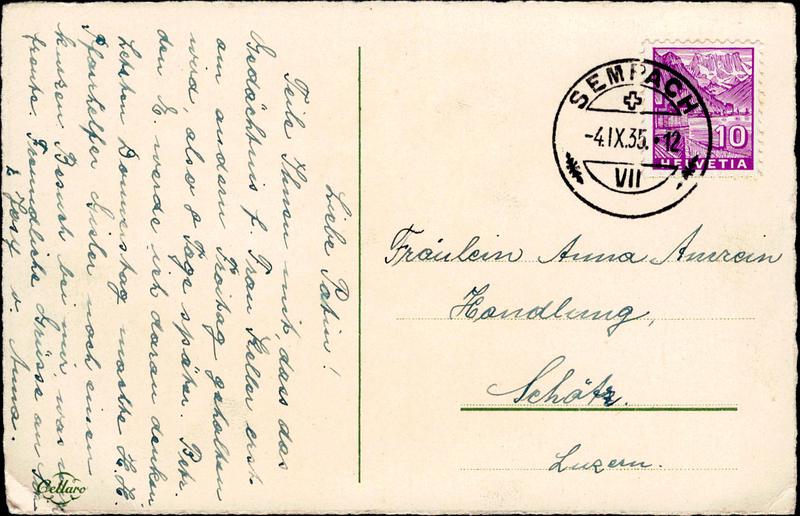 Liebe Patin!
Teile Ihnen mit, dass das
Gedächtnis f. Frau Keller erst
am andern Freitag gehalten
wird, also 8 Tage später. Betr.
den E. werde ich daran denken
Letzten Donnerstag machte H.H.
Pfarrhelfer Sisler noch einen
kurzen Besuch bei mir was
freute. Freundliche Grüsse an
Josef u. Anna.
Cellaro
SEMPACH
-4.IX.35.-12
VII
10
HELVETIA
Fräulein Anna Amrein
Handlung,
Schötz.
Luzern.